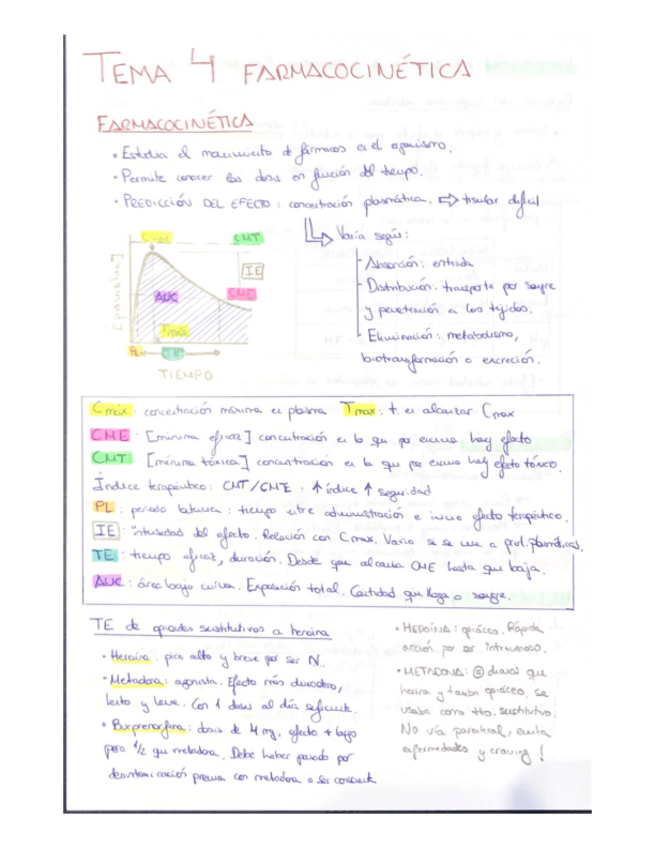 TEMA 4 FARMACOCINÉTICA
FARMACOCINÉTICA
• Estudia el movimiento de fármacos en el organismo.
• Permite conocer las dosis en función del tiempo.
• PREDICCIÓN DEL EFECTO: concentración plasmática. ⇨ tisular difícil
Varía según:
Absorción: entrada
Distribución: transporte por sangre
y penetración en los tejidos.
Eliminación: metabolismo,
biotransformación o excreción.
Cmax
CMT
IE
[plasmática]
AUC
CME
Tmax
PL
TE
TIEMPO
Cmáx: concentración máxima en plasma Tmax: t. en alcanzar Cmax
CME: [mínima eficaz] concentración en la que por encima hay efecto
CMT: [mínima tóxica] concentración en la que por encima hay efecto tóxico.
Índice terapéutico: CMT/CME, ↑ índice ↑ seguridad
PL: periodo latencia: tiempo entre administración e inicio efecto terapéutico.
IE: intensidad del efecto. Relación con Cmax. Varía si se une a prot. plasmáticas.
TE: tiempo eficaz, duración. Desde que alcanza CME hasta que baja.
AUC: área bajo curva. Exposición total. Cantidad que llega a sangre.
TE de opiodes sustitutivos a heroína
• Heroína: pico alto y breve por ser IV.
• Metadona: agonista. Efecto más duradero,
lento y leve. Con 1 dosis al día suficiente.
• Buprenorfina: dosis de 4 mg, efecto + largo
pero 1/2 que metadona. Debe haber pasado por
desintoxicación previa con metadona o ser
• HEROÍNA: opiáceo. Rápida
acción por ser intravenoso.
• METADONA: dianas que
heroína y también opiáceo, se
usaba como tto. sustitutivo.
No vía parenteral, evita
enfermedades y craving!